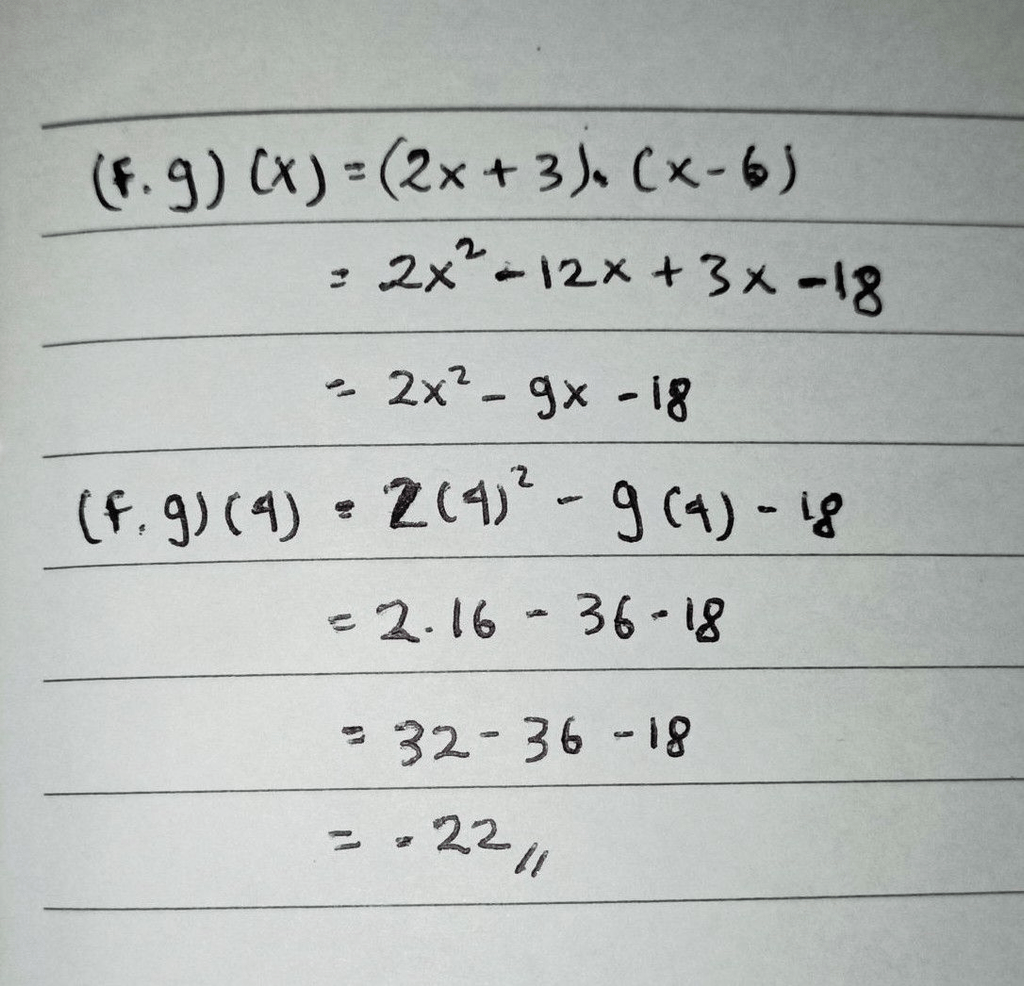 (f.g) (x) = (2x + 3). (x - 6)
= 2x² - 12x + 3x - 18
= 2x² - 9x - 18
(f.g) (4) = 2(4)² - 9(4) - 18
= 2.16 - 36 - 18
= 32 - 36 - 18
= - 22 //